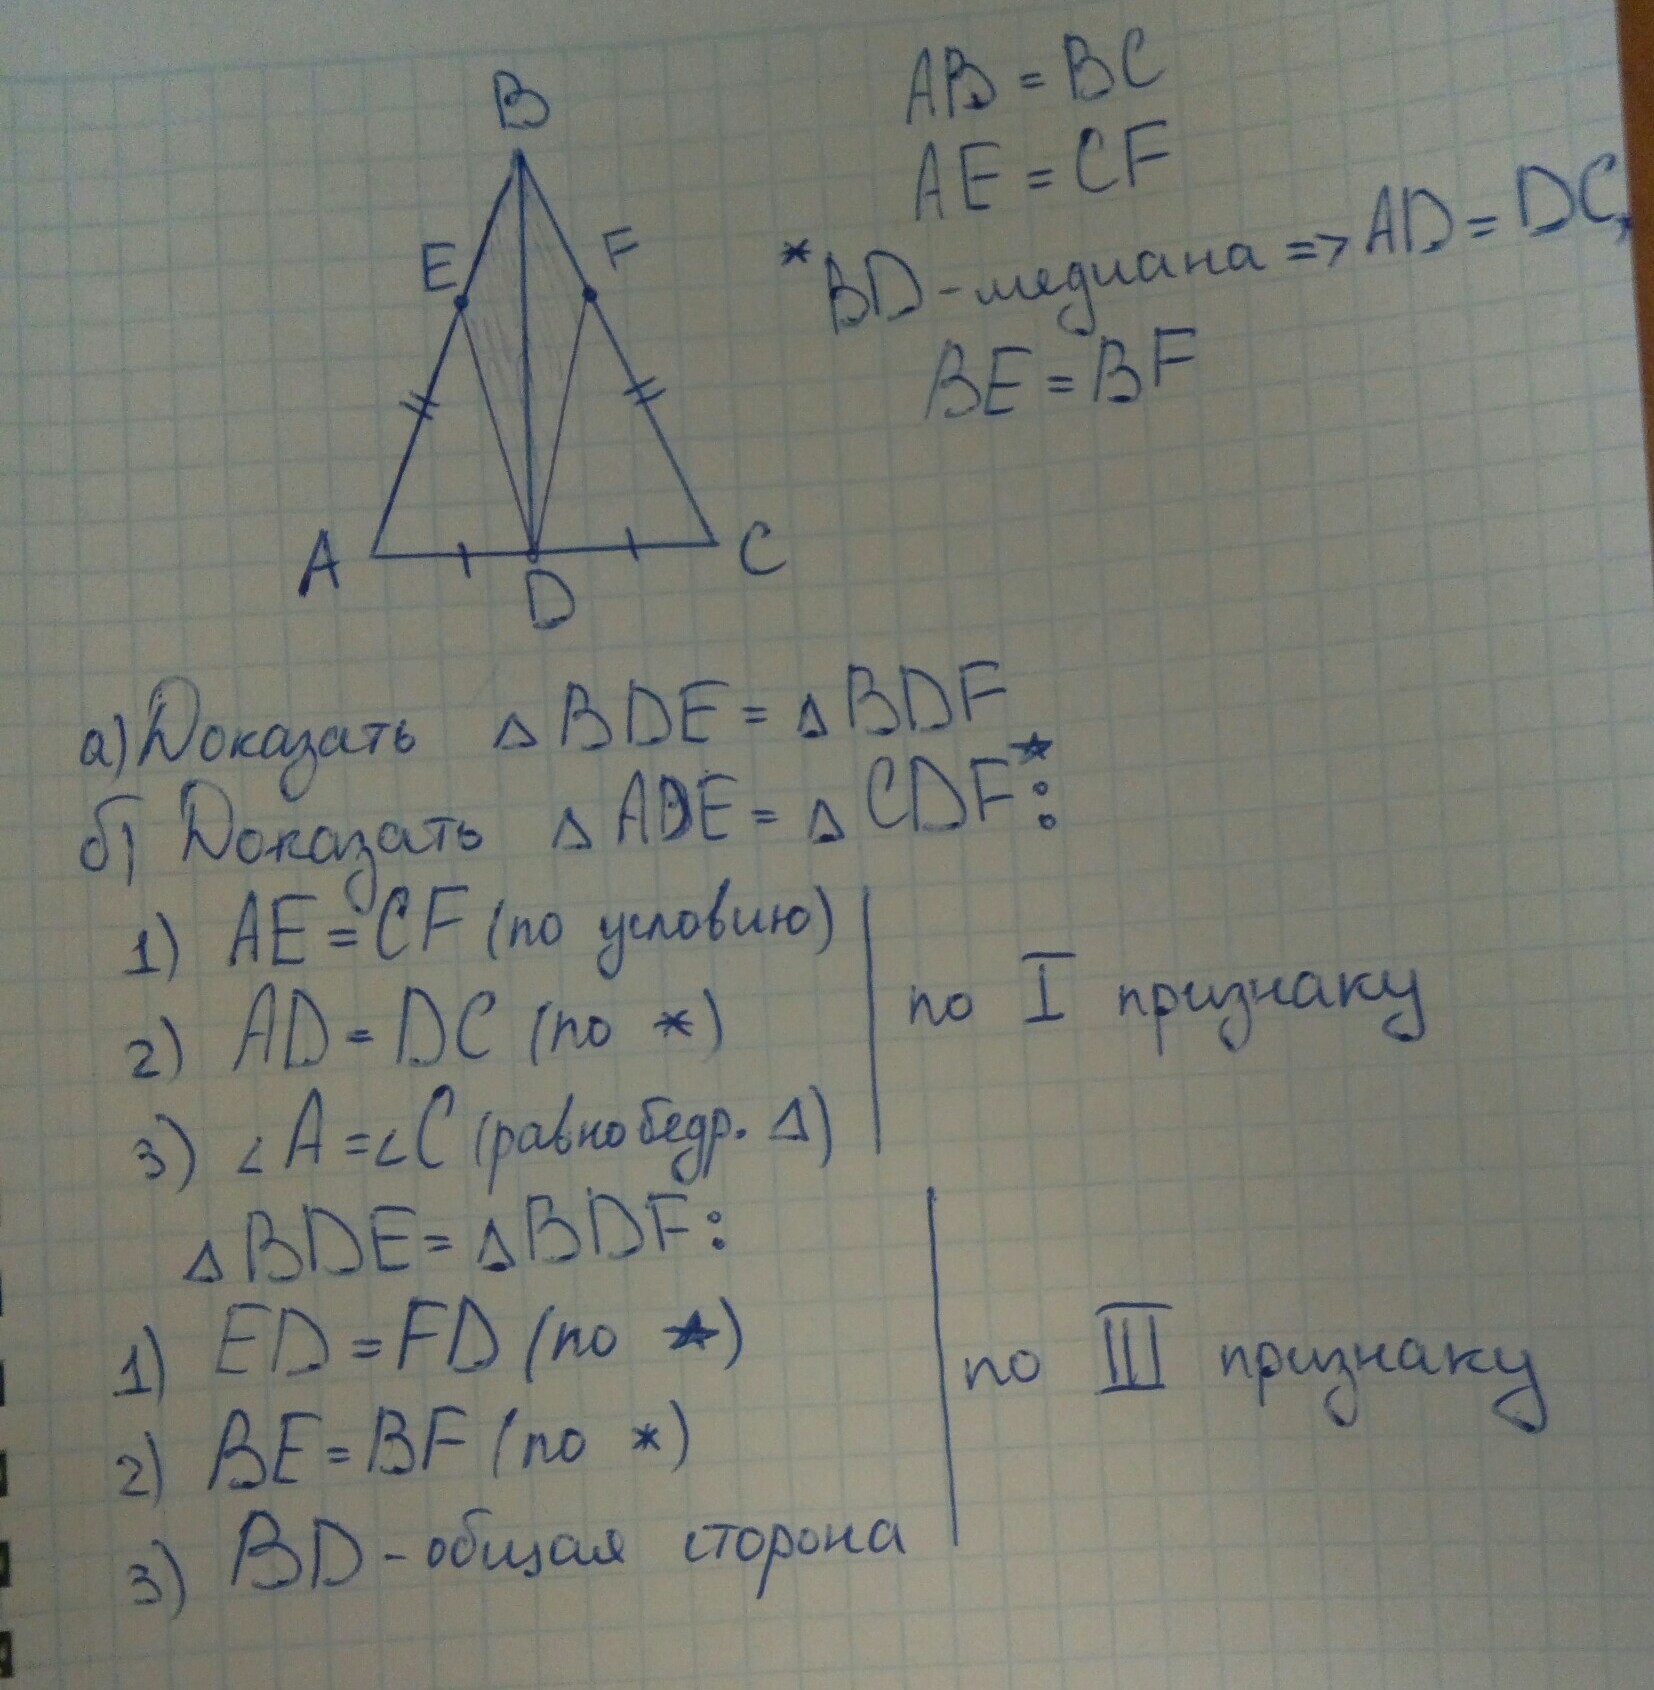 B
AB = BC
AE = CF
E
F
* BD - медиана => AD = DC,
BE = BF
A
D
C
а) Доказать △ BDE = △ BDF
б) Доказать △ ADE = △ CDF★:
1) AE = CF (по условию)
2) AD = DC (по *)
3) ∠A = ∠C (равнобедр. △)
по I признаку
△ BDE = △ BDF:
1) ED = FD (по ★)
2) BE = BF (по *)
3) BD - общая сторона
по III признаку